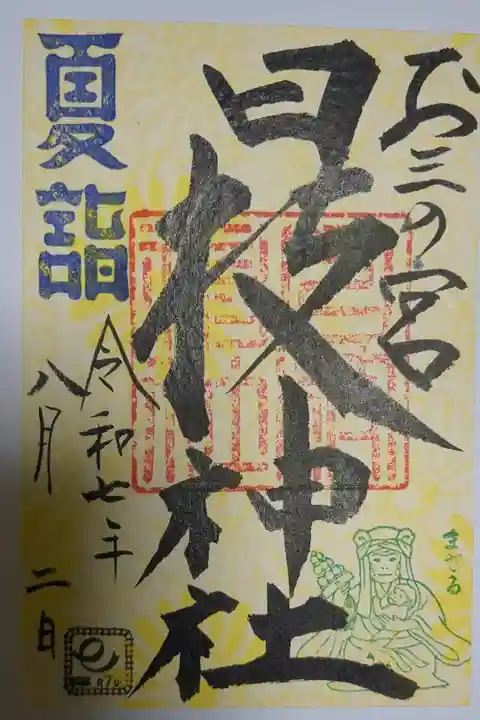 お三の宮
日枝神社
夏詣
令和七年
八月二日
まさる
R7